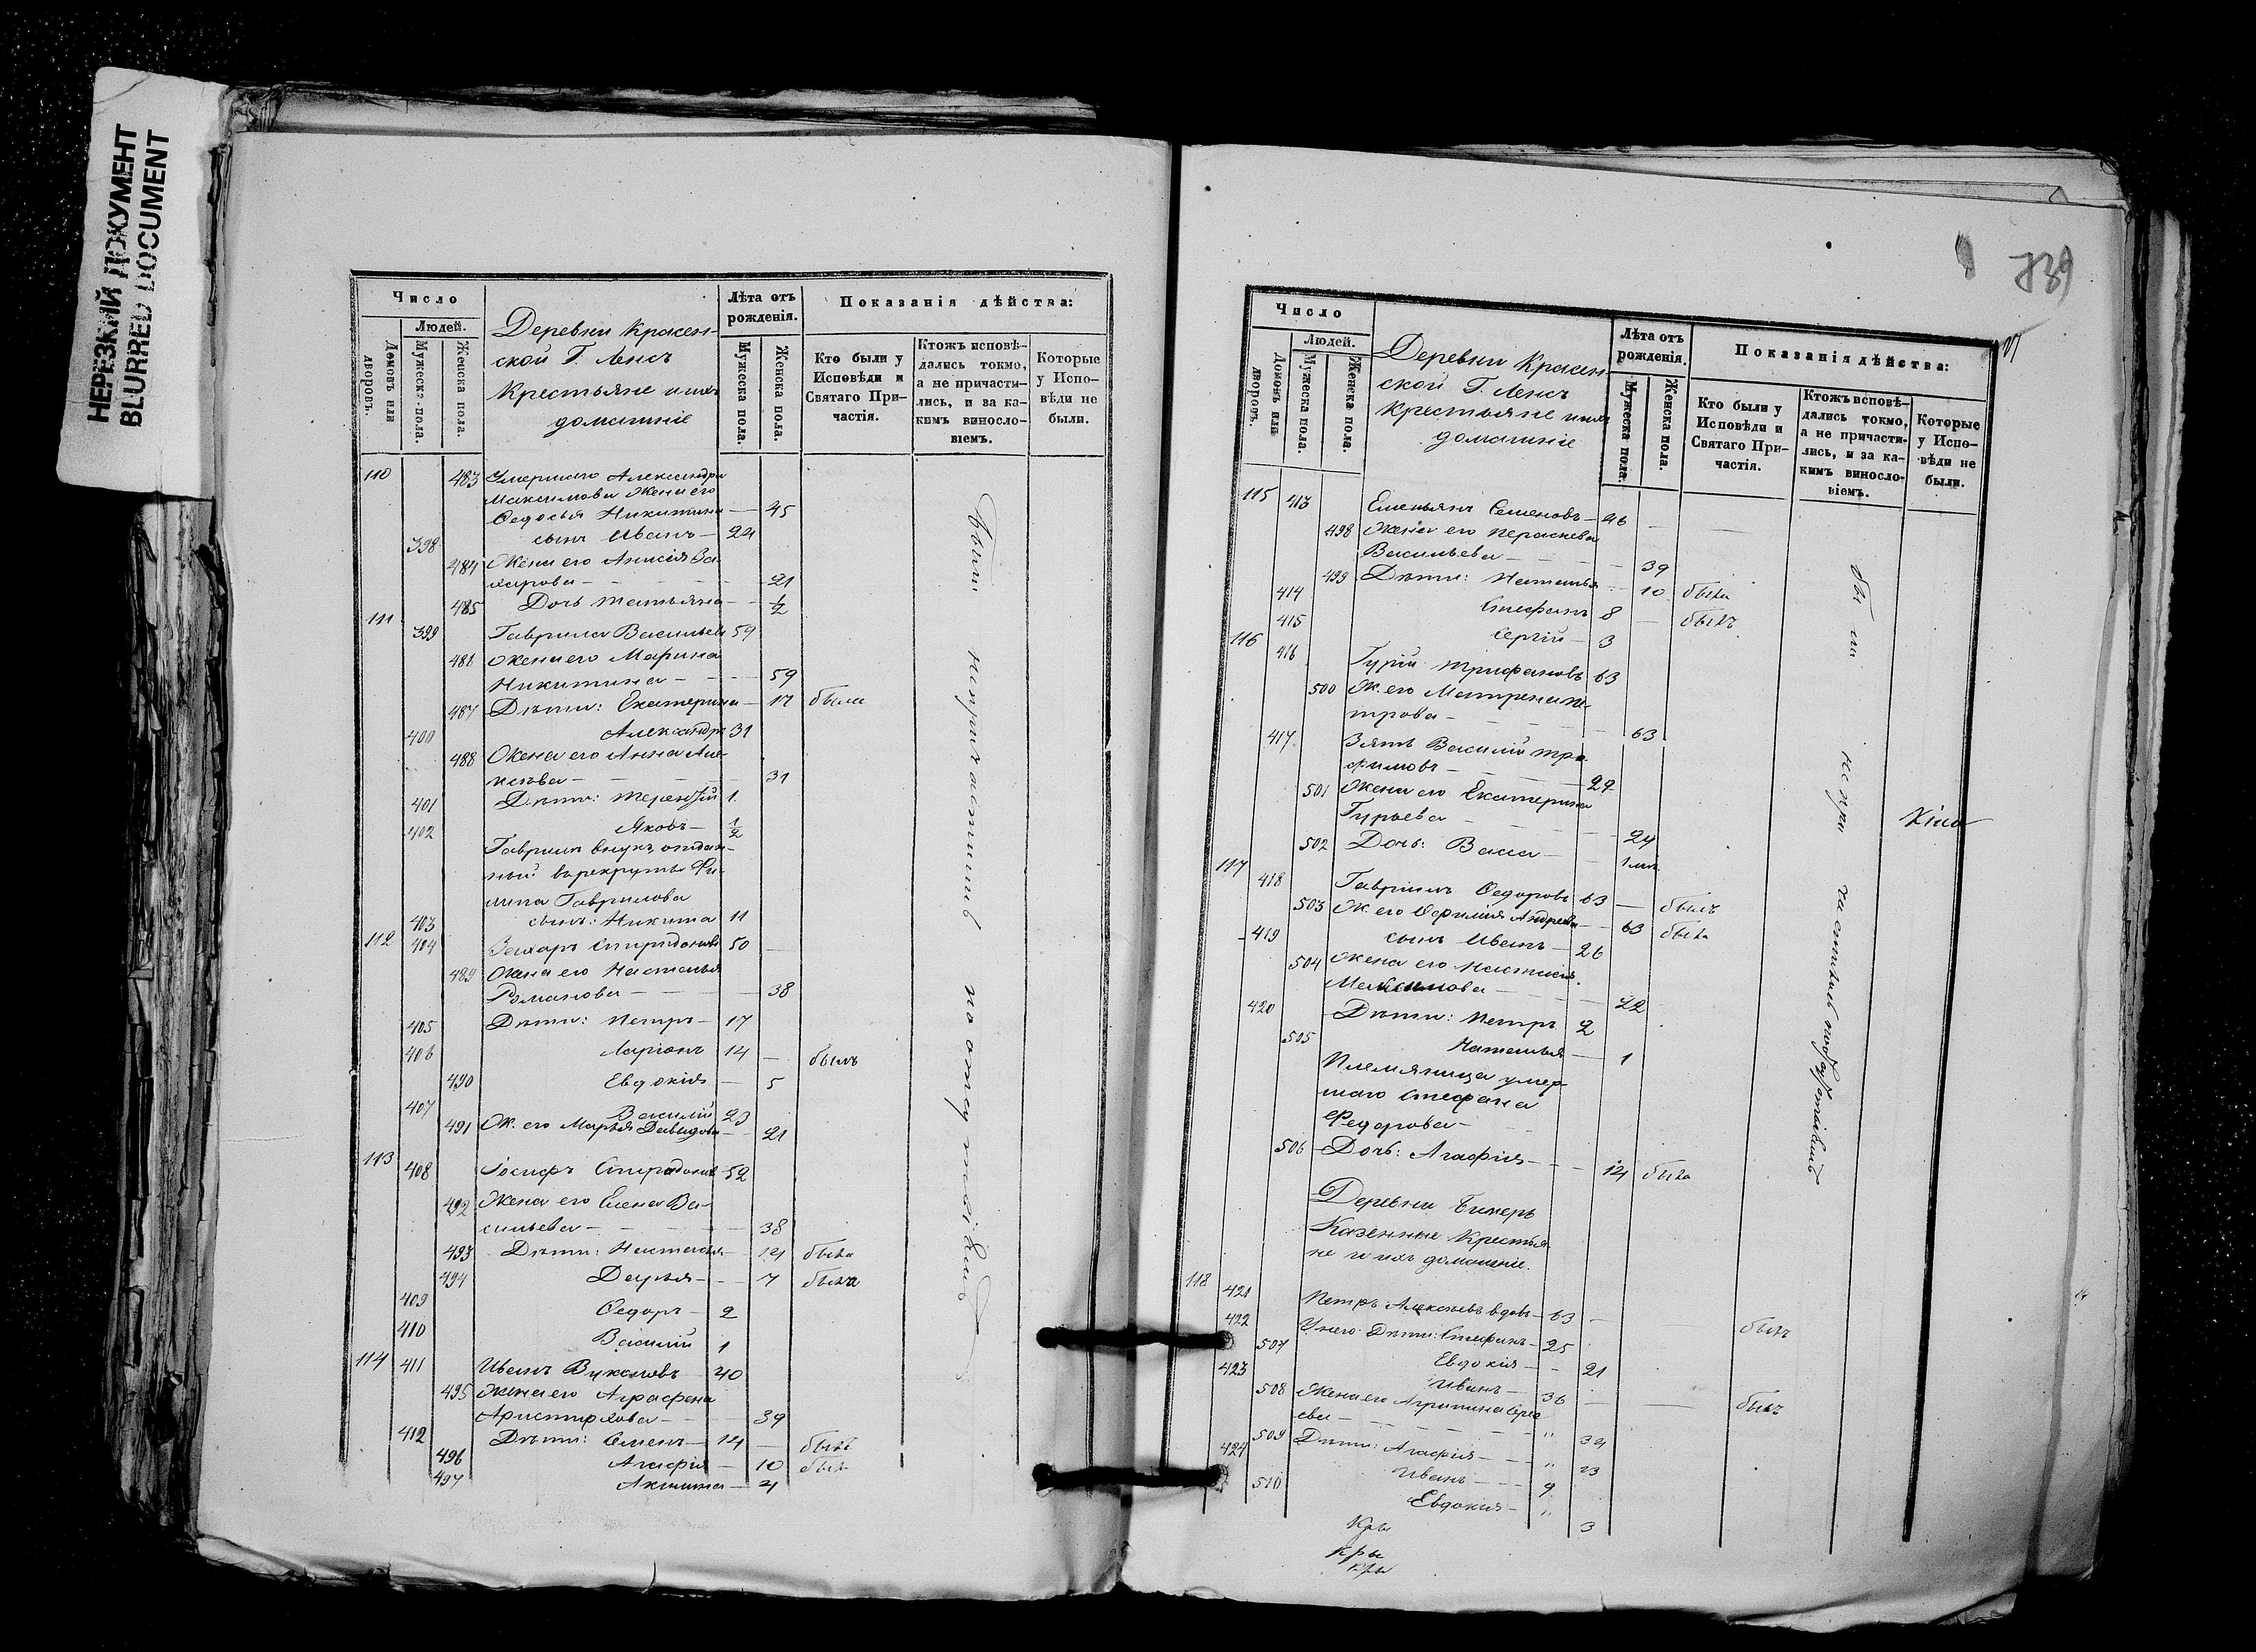 НЕРЕЗКИЙ ДОКУМЕНТ
BLURRED DOCUMENT
Число
Людей.
Домовъ или дворовъ.
Мужеска пола.
Женска пола.
Деревни Красен-
ской Г. Ленсъ
Крестьяне и ихъ
домашніе
Лѣта отъ рожденія.
Мужеска пола.
Женска пола.
Показанія дѣйства:
Кто были у Исповѣди и Святаго При-частія.
Ктожъ исповѣ-дались токмо, а не причасти-лись, и за ка-кимъ винослo-віемъ.
Которые у Испо-вѣди не были.
110 483 Умершаго Александра
Максимова жена его
Федосья Никитина — 45
398 сынъ Иванъ — 24
484 Жена его Анисія За-
харова — 21
485 Дочь Татьяна — 1/2
111 399 Гаврила Васильевъ 59
486 жена его Марина
Никитина — 59
487 Дѣти: Екатерина — 17 была
400 Александръ 31
488 Жена его Анна Але-
ксѣева — 31
401 Дѣти: Терентій 1
402 Яковъ — 1/2
Гаврилы внукъ, отдан-
ный въ рекруты Фи-
липа Гаврилова
403 сынъ: Никита 11
112 404 Захаръ Спиридоновъ 50 —
489 Жена его Настасья
Романова — 38
405 Дѣти: Петръ — 17
406 Ларіонъ 14 — былъ
490 Евдокія — 5
407 Василій 23
491 Ж. его Марья Давыдова — 21
113 408 Іосифъ Спиридоновъ 52
492 Жена его Елена Ва-
сильева — 38
493 Дѣти: Настасья — 14 была
494 Дарья — 7 была
409 Федоръ — 2
410 Василій 1
114 411 Иванъ Вуколовъ 40
495 Жена его Аграфена
— 39
412 Дѣти: Семенъ — 14 — былъ
496 Агафія — 10 была
497 Акилина — 4
739
Число
Людей.
Домовъ или дворовъ.
Мужеска пола.
Женска пола.
Деревни Красен-
ской Г. Ленсъ
Крестьяне и ихъ
домашніе
Лѣта отъ рожденія.
Мужеска пола.
Женска пола.
Показанія дѣйства:
Кто были у Исповѣди и Святаго При-частія.
Ктожъ исповѣ-дались токмо, а не причасти-лись, и за ка-кимъ винослo-віемъ.
Которые у Испо-вѣди не были.
115 413 Емельянъ Семеновъ — 46 —
498 Жена его Парасковья
Васильева — 39
499 Дѣти: Наталья — 10 была
414 Стефанъ 8 — былъ
415 Сергій — 3
116 416 Гурій Трифановъ 63
500 Ж. его Матрена Пе-
трова — 63
417 Зять Василій Тро-
фимовъ — 27
501 Жена его Екатерина
Гурьева — 24
502 Дочь: Васса —
117 418 Гавріилъ Федоровъ 63 — былъ
503 Ж. его Андреева — 63 была
419 сынъ Иванъ — 26
504 Жена его Настасія
Максимова — 22
420 Дѣти: Петръ 2
505 Наталья — 1
Племяница умер-
шаго Стефана
Федорова —
506 Дочь: Агафія — 14 была
Деревни Бимеръ
Казенные Крестья-
не и ихъ домашніе.
118 421 Петръ Алексѣевъ вдовъ — 63 — былъ
422 У него Дѣти: Стефанъ — 25
507 Евдокія — 21
423 Иванъ — 36 — былъ
508 Жена его Агрипина Серге-
ева — 34
509 Дѣти: Агафія — 13
424 Иванъ — 9
510 Евдокия — 3
Кры
кры
кры